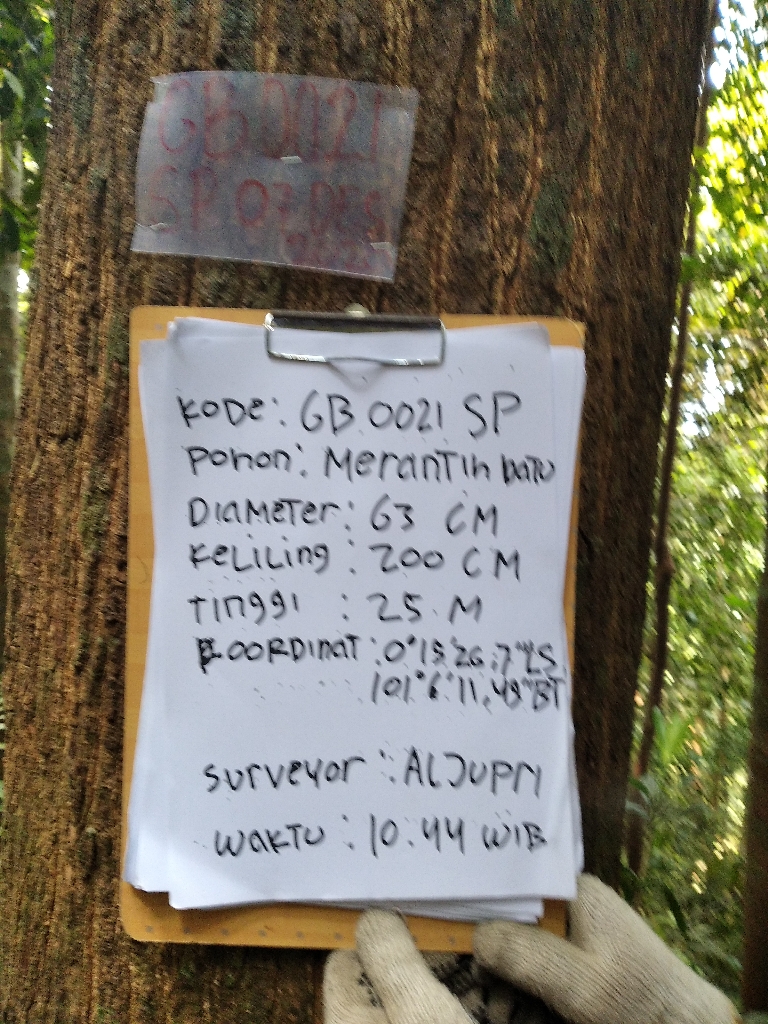 GB 0021
SP 07 DES
KODE: GB 0021 SP
POHON: MERANTIH BATU
DIAMETER: 63 CM
KELILING : 200 CM
TINGGI : 25 M
KOORDINAT : 0°15'26,7"LS
101°6'11,49"BT
SURVEYOR : ALJUPRI
WAKTU : 10.44 WIB